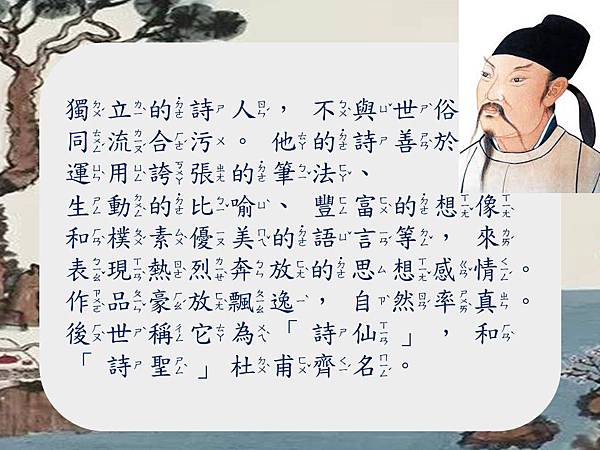 獨立的詩人，不與世俗
同流合污。他的詩善於
運用誇張的筆法、
生動的比喻、豐富的想像
和樸素優美的語言等，來
表現熱烈奔放的思想感情。
作品豪放飄逸，自然率真。
後世稱它為「詩仙」，和
「詩聖」杜甫齊名。